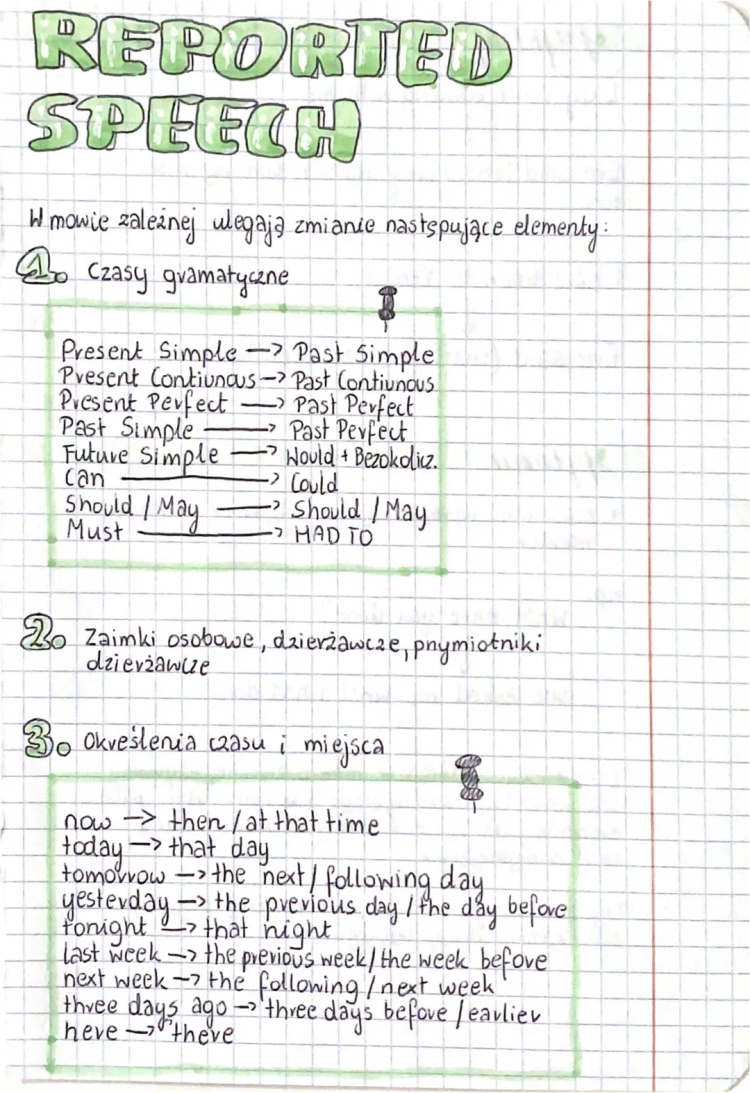 REPORTED
SPEECH
W mowie zależnej ulegają zmianie następujące elementy:
1. Czasy gramatyczne
Present Simple → Past Simple
Present Contiunous → Past Contiunous
Present Perfect → Past Perfect
Past Simple → Past Perfect
Future Simple → Would + Bezokolicz.
Can → Could
Should / May → Should / May
Must → HAD TO
2. Zaimki osobowe, dzierżawcze, pnymiotniki
dzierżawcze
3. Określenia czasu i miejsca
now → then / at that time
today → that day
tomorrow → the next / following day
yesterday → the previous day / the day before
tonight → that night
last week → the previous week / the week before
next week → the following / next week
three days ago → three days before / earlier
here → there